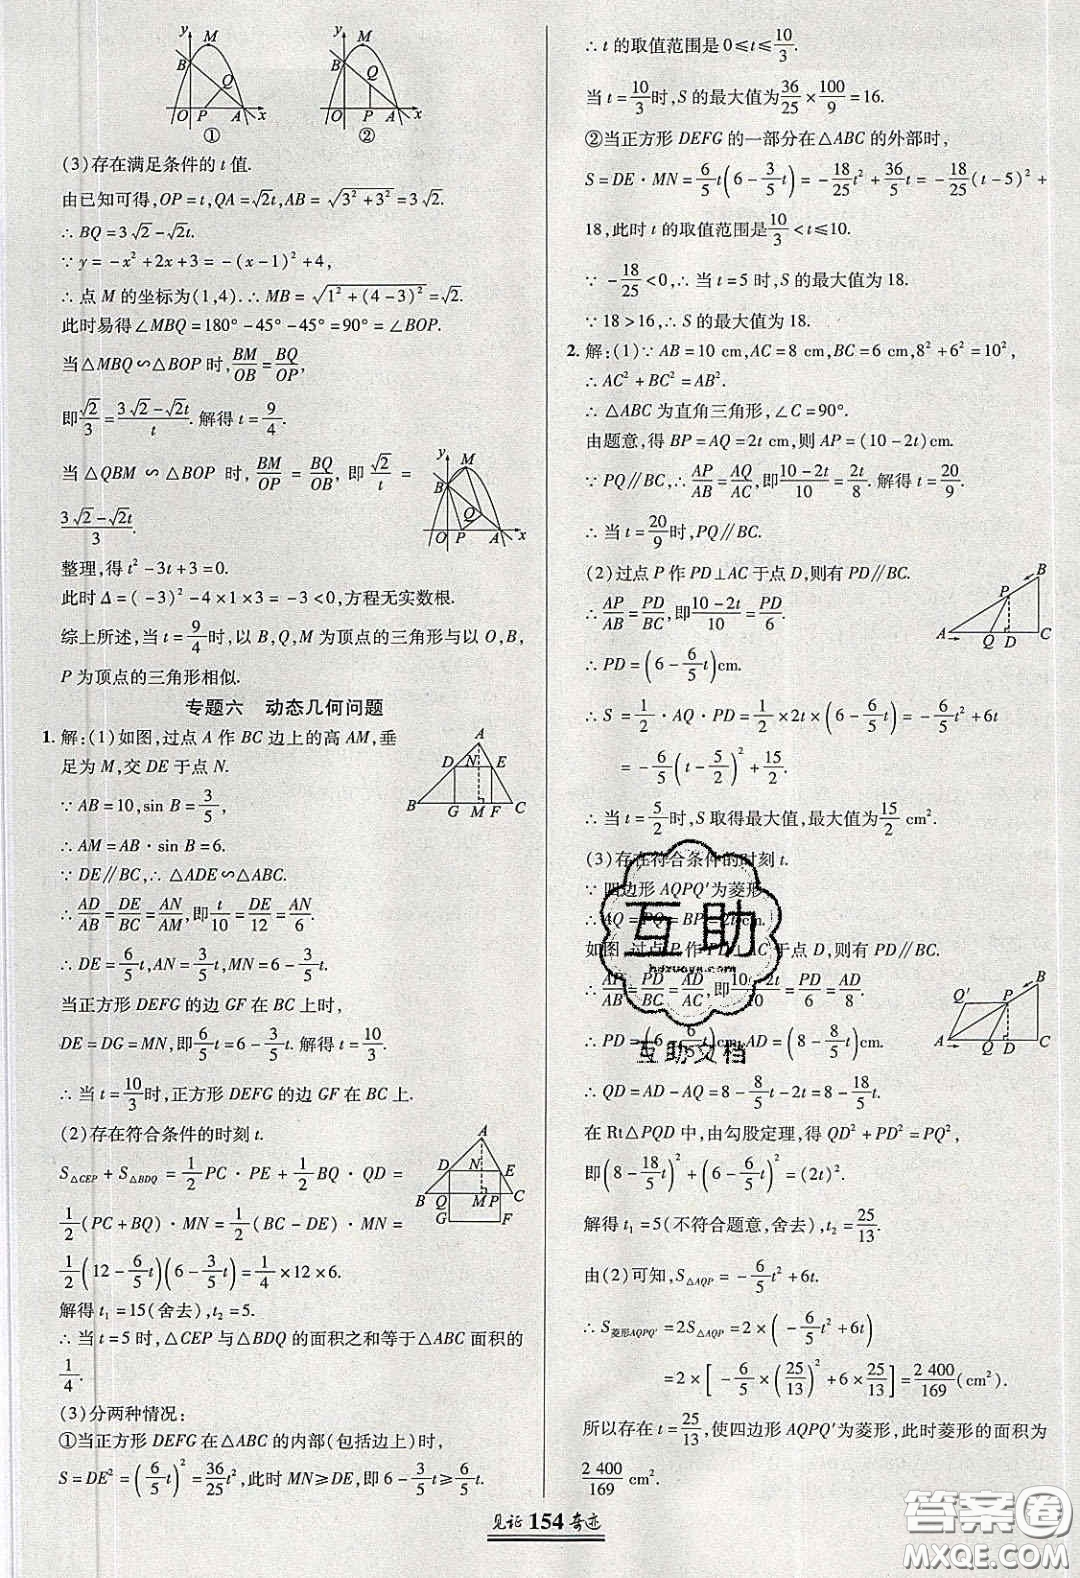 y M B Q O P A x ①
y M B Q O P A x ②
(3)存在满足条件的 t 值.
由已知可得,OP=t,QA=√2t,AB=√(3²+3²)=3√2.
∴ BQ=3√2-√2t.
∵ y=-x²+2x+3=-(x-1)²+4,
∴ 点 M 的坐标为(1,4).∴ MB=√(1²+(4-3)²)=√2.
此时易得∠MBQ=180°-45°-45°=90°=∠BOP.
当△MBQ∽△BOP 时,BM/OB=BQ/OP,
即√2/3=(3√2-√2t)/t. 解得 t=9/4.
当△QBM∽△BOP 时,BM/OP=BQ/OB,即√2/t=
(3√2-√2t)/3.
y M B Q O P A x
整理,得 t²-3t+3=0.
此时 Δ=(-3)²-4×1×3=-3<0,方程无实数根.
综上所述,当 t=9/4时,以 B,Q,M 为顶点的三角形与以 O,B,
P 为顶点的三角形相似.
专题六 动态几何问题
1. 解:(1)如图,过点 A 作 BC 边上的高 AM,垂
足为 M,交 DE 于点 N.
A D N E B G M F C
∵ AB=10,sin B=3/5,
∴ AM=AB·sin B=6.
∵ DE∥BC,∴ △ADE∽△ABC.
∴ AD/AB=DE/BC=AN/AM,即t/10=DE/12=AN/6.
∴ DE=6/5t,AN=3/5t,MN=6-3/5t.
当正方形 DEFG 的边 GF 在 BC 上时,
DE=DG=MN,即6/5t=6-3/5t. 解得 t=10/3.
∴ 当 t=10/3时,正方形 DEFG 的边 GF 在 BC 上.
(2)存在符合条件的时刻 t.
S△CEP+S△BDQ=1/2PC·PE+1/2BQ·QD=
1/2(PC+BQ)·MN=1/2(BC-DE)·MN=
A D N E B Q M P C G F
1/2(12-6/5t)(6-3/5t)=1/4×12×6.
解得 t₁=15(舍去),t₂=5.
∴ 当 t=5 时,△CEP 与△BDQ 的面积之和等于△ABC 面积的
1/4.
(3)分两种情况:
①当正方形 DEFG 在△ABC 的内部(包括边上)时,
S=DE²=(6/5t)²=36/25t²,此时 MN≥DE,即 6-3/5t≥6/5t.
∴ t 的取值范围是 0≤t≤10/3.
当 t=10/3时,S 的最大值为36/25×100/9=16.
②当正方形 DEFG 的一部分在△ABC 的外部时,
S=DE·MN=6/5t(6-3/5t)=-18/25t²+36/5t=-18/25(t-5)²+
18,此时 t 的取值范围是10/3<t≤10.
∵ -18/25<0,∴ 当 t=5 时,S 的最大值为 18.
∵ 18>16,∴ S 的最大值为 18.
2. 解:(1)∵ AB=10 cm,AC=8 cm,BC=6 cm,8²+6²=10²,
∴ AC²+BC²=AB².
∴ △ABC 为直角三角形,∠C=90°.
由题意,得 BP=AQ=2t cm,则 AP=(10-2t)cm.
∵ PQ∥BC,∴ AP/AB=AQ/AC,即(10-2t)/10=2t/8. 解得 t=20/9.
∴ 当 t=20/9时,PQ∥BC.
(2)过点 P 作 PD⊥AC 于点 D,则有 PD∥BC.
∴ AP/AB=PD/BC,即(10-2t)/10=PD/6.
A P B Q D C
∴ PD=(6-6/5t)cm.
∴ S =1/2·AQ·PD=1/2×2t×(6-6/5t)=-6/5t²+6t
=-6/5(t-5/2)²+15/2.
∴ 当 t=5/2时,S 取得最大值,最大值为15/2 cm².
(3)存在符合条件的时刻 t.
∵ 四边形 AQPQ′为菱形,
∴ AQ=PQ=BP=2t cm.
如图,过点 P 作 PD⊥AC 于点 D,则有 PD∥BC.
∴ AP/AB=PD/BC=AD/AC,即(10-2t)/10=PD/6=AD/8.
Q′ P B A Q D C
∴ PD=(6-6/5t)cm,AD=(8-8/5t)cm.
∴ QD=AD-AQ=8-8/5t-2t=8-18/5t.
在 Rt△PQD 中,由勾股定理,得 QD²+PD²=PQ²,
即(8-18/5t)²+(6-6/5t)²=(2t)².
解得 t₁=5(不符合题意,舍去),t₂=25/13.
由(2)可知,S△AQP=-6/5t²+6t.
∴ S菱形AQPQ′=2S△AQP=2×(-6/5t²+6t)
=2×[-6/5×(25/13)²+6×25/13]=2 400/169(cm²).
所以存在 t=25/13,使四边形 AQPQ′为菱形,此时菱形的面积为
2 400/169 cm².
互助
hdzuoye.com
互助文档
见证154奇迹
答案圈
MXQE.COM